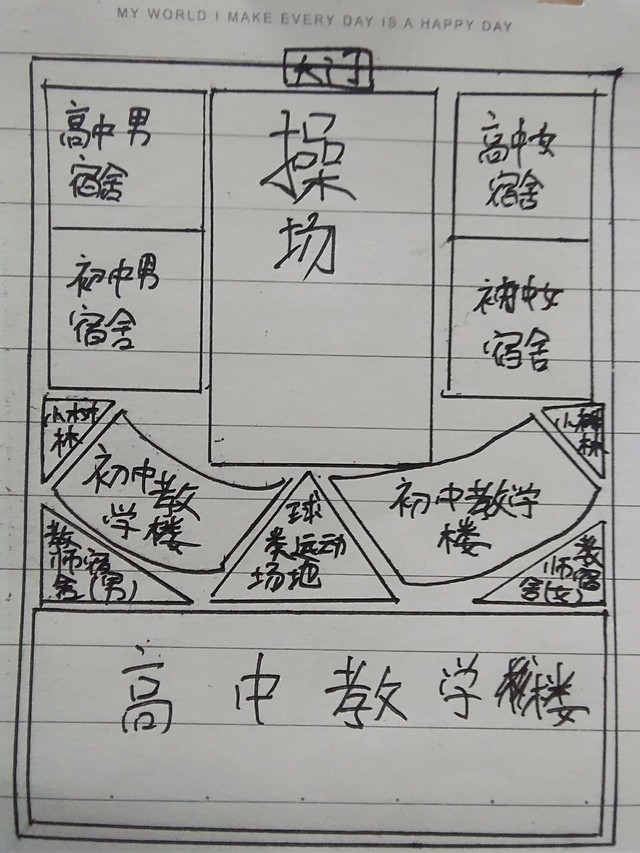 MY WORLD I MAKE EVERY DAY IS A HAPPY DAY
大门
高中男
宿舍
操
场
高中女
宿舍
初中男
宿舍
初中女
宿舍
小树
林
小树
林
初中教
学楼
初中教学
楼
球
类运动
场地
教
师宿
舍(男)
教
师宿
舍(女)
高中教学楼